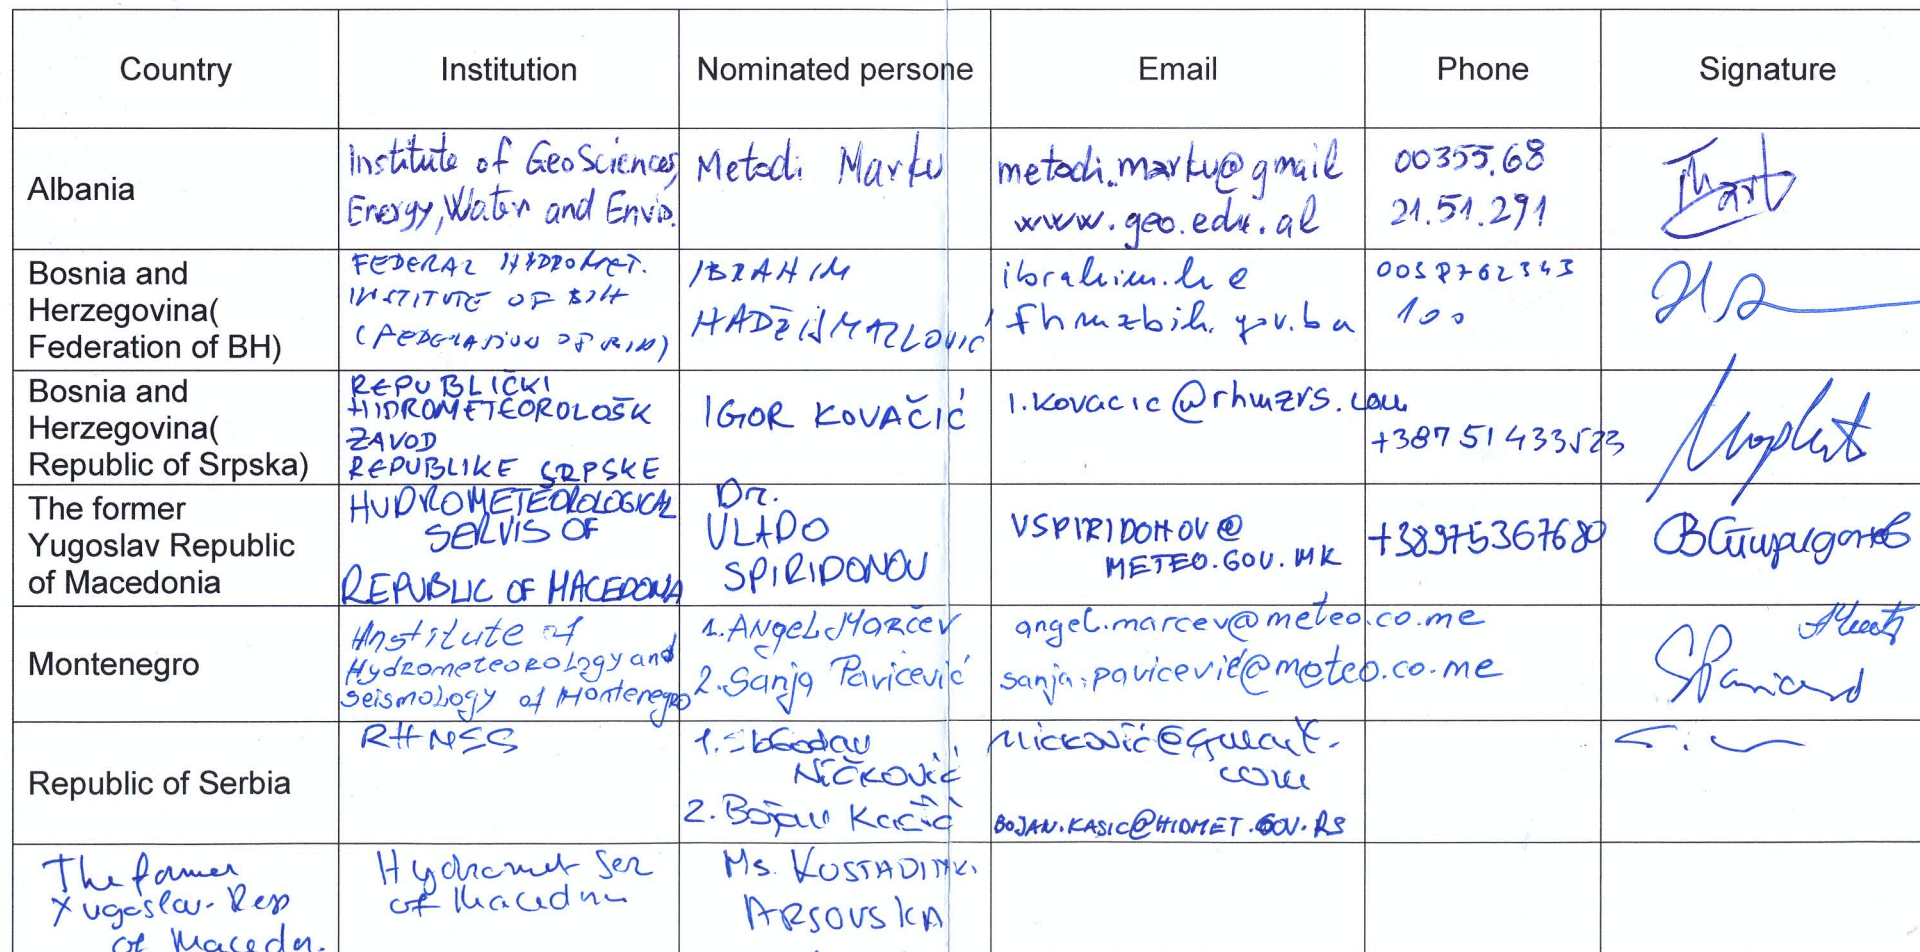 Country Institution Nominated persone Email Phone Signature
Albania
Institute of GeoSciences,
Energy, Water and Enviro.
Metodi Marku
metodi.marku@gmail
www.geo.edu.al
00355.68
21.51.291
Bosnia and
Herzegovina(
Federation of BH)
FEDERAL HYDROMET.
INSTITUTE OF BIH
IBRAHIM
ibrahim.h@
fhmzbih.gov.ba
100
Bosnia and
Herzegovina(
Republic of Srpska)
REPUBLIČKI
HIDROMETEOROLOŠK
ZAVOD
REPUBLIKE SRPSKE
IGOR KOVAČIĆ
i.kovacic@rhmzrs.com
+387 51 433523
The former
Yugoslav Republic
of Macedonia
HUDROMETEOROLOGICAL
SERVIS OF
REPUBLIC OF MACEDONIA
Dr.
VLADO
SPIRIDONOV
VSPIRIDONOV@
METEO.GOV.MK
+38975367680
Montenegro
Institute of
Hydrometeorology and
seismology of Montenegro
1. Angel Marčev
2. Sanja Pavićević
angel.marcev@meteo.co.me
sanja.pavicevic@meteo.co.me
Republic of Serbia
RHMSS
1. Slobodan
Ničković
2. Bojan Kašić
nickovic@gmail.
com
BOJAN.KASIC@HIDMET.GOV.RS
The former
Yugoslav Rep
of Macedon.
Hydromet Ser
of Macedonia
Ms.
ARSOVSKA